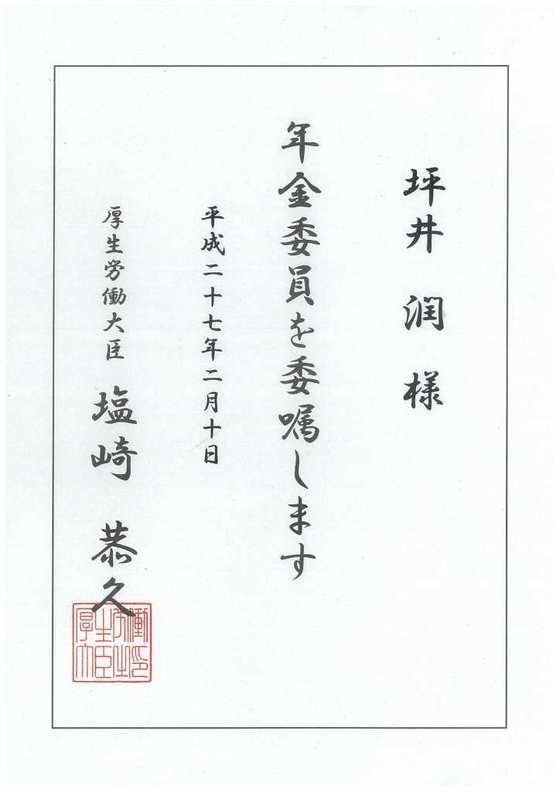 坪井 潤 様
年金委員を委嘱します
平成二十七年二月十日
厚生労働大臣 塩崎 恭久
厚生労働大臣印